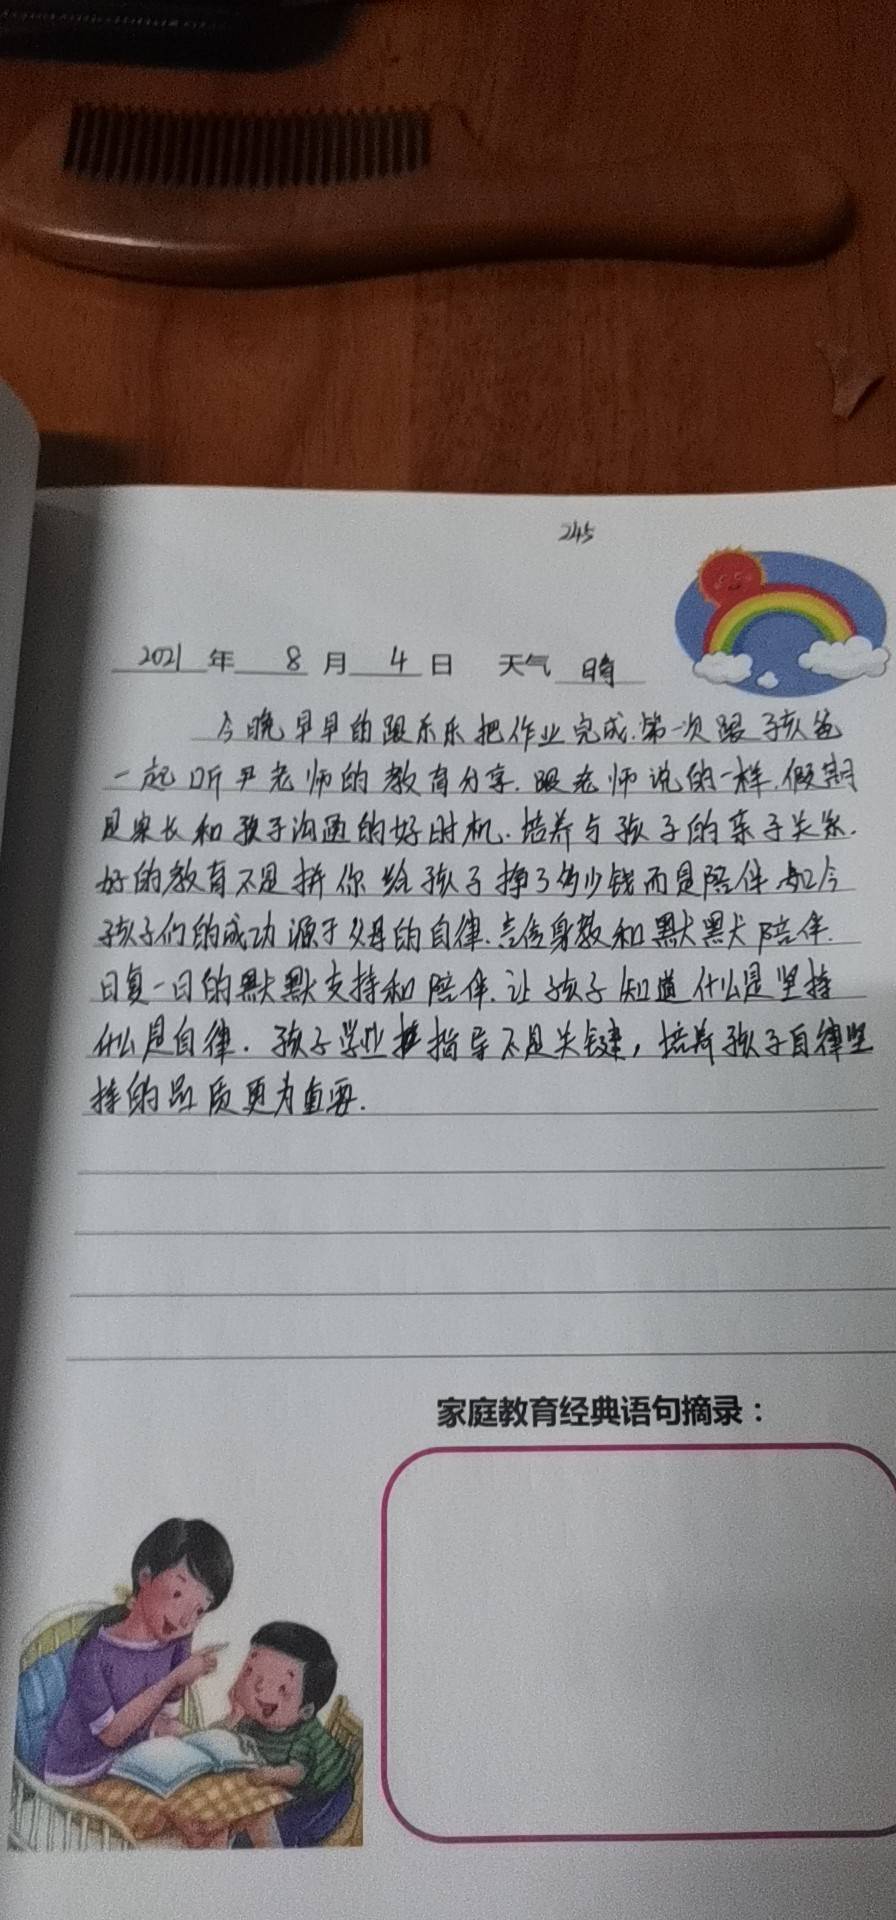 245
2021年8月4日 天气 晴
今晚早早的跟乐乐把作业完成.第一次跟孩爸
一起听尹老师的教育分享.跟老师说的一样.假期
是家长和孩子沟通的好时机.培养与孩子的亲子关系.
好的教育不是拼你给孩子挣了多少钱而是陪伴.如今
孩子们的成功源于父母的自律.言传身教和默默陪伴.
日复一日的默默支持和陪伴.让孩子知道什么是坚持
什么是自律.孩子学业指导不是关键，培养孩子自律坚
持的品质更为重要.
家庭教育经典语句摘录：